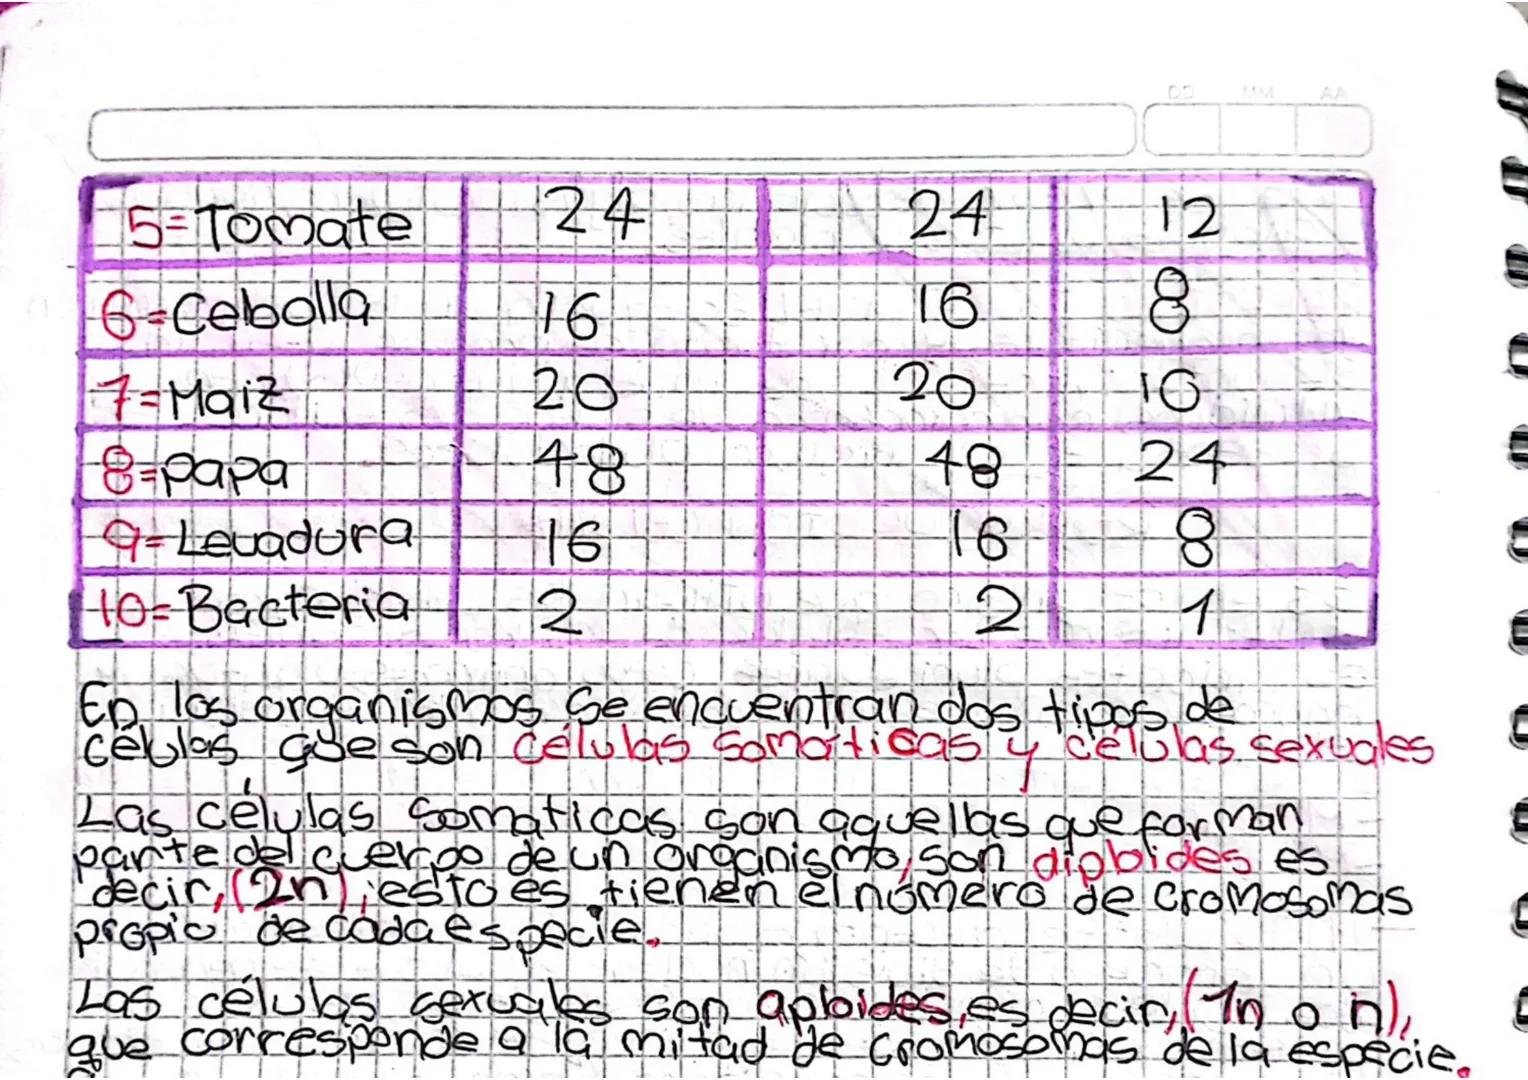 DD MM AA
5=Tomate 24 24 12
6=Cebolla 16 16 8
7=Maiz 20 20 10
8=papa 48 48 24
9=Levadura 16 16 8
10=Bacteria 2 2 1
En los organismos se encuentran dos tipos de
células que son células somáticas y células sexuales
Las células somáticas son aquellas que forman
parte del cuerpo de un organismo, son diploides es
decir, (2n), esto es tienen el número de cromosomas
propio de cada especie.
Las células sexuales son aploides, es decir, (1n o n),
que corresponde a la mitad de cromosomas de la especie.